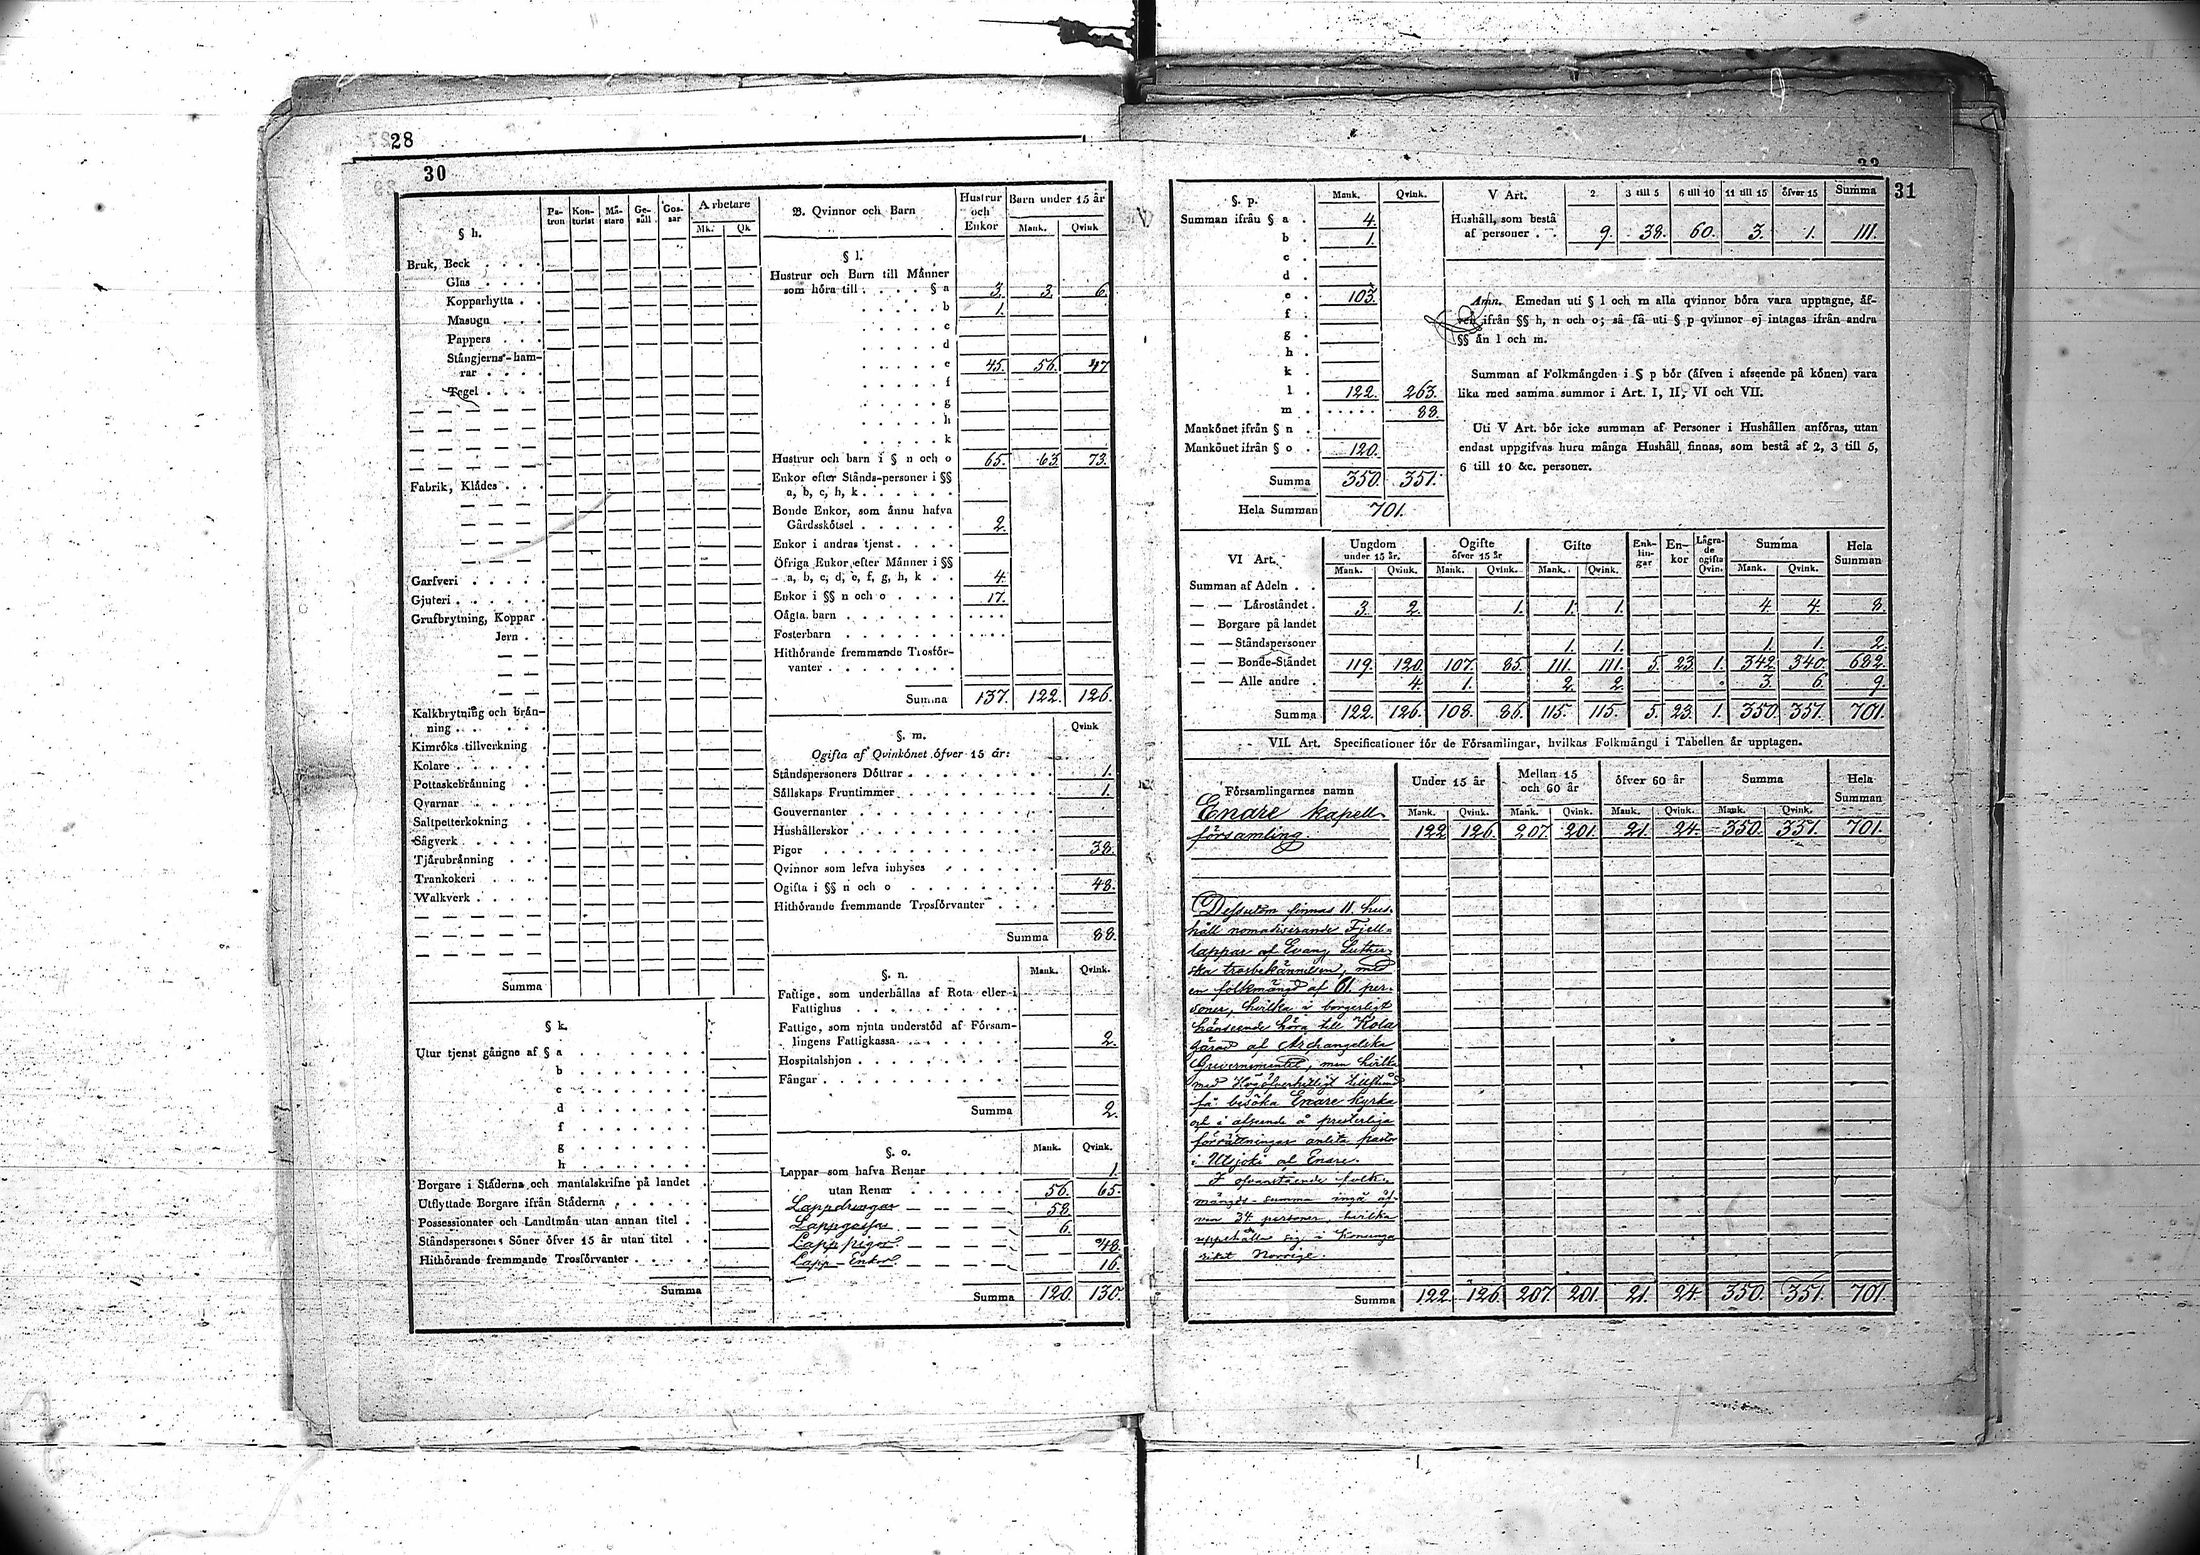 28
30
§ h.
Pa-
tron
Kon-
turist
Må-
stare
Ge-
säll
Gos-
sar
Arbetare
Mk.
Qk
Bruk, Beck . . . .
Glas . . . .
Kopparhytta . .
Masugn . . .
Pappers . . .
Stångjerns-ham-
rar . . . .
Tegel . . . .
Fabrik, Klädes . . .
Garfveri . . . . .
Gjuteri . . . . . .
Grufbrytning, Koppar .
Jern . .
Kalkbrytning och brän-
ning . . . . . .
Kimröks tillverkning .
Kolare . . . . . .
Pottaskebränning .
Qvarnar . . . . .
Saltpetterkokning .
Sågverk . . . . .
Tjärubränning . . .
Trankokeri . . . .
Walkverk . . . . .
Summa
§ k.
Utur tjenst gångne af § a . . . . . . .
b . . . . . . .
c . . . . . . .
d . . . . . . .
f . . . . . . .
g . . . . . . .
h . . . . . . .
Borgare i Städerna och mantalskrifne på landet .
Utflyttade Borgare ifrån Städerna . . . . .
Possessionater och Landtmän utan annan titel . .
Ståndspersoners Söner öfver 15 år utan titel . .
Hithörande fremmande Trosförvanter . . . . .
Summa
B. Qvinnor och Barn
Hustrur
och
Enkor
Barn under 15 år
Mank.
Qvink
§ l.
Hustrur och Barn till Männer
som höra till . . . . § a 3. 3. 6.
. . . . . b 1.
. . . . . c
. . . . . d
. . . . . e 45. 56. 47
. . . . . f
. . . . . g
. . . . . h
. . . . . k
Hustrur och barn i § n och o 65. 63. 73.
Enkor efter Stånds-personer i §§
a, b, c, h, k . . . . . .
Bonde Enkor, som ännu hafva
Gårdsskötsel . . . . . . 2.
Enkor i andras tjenst . . . .
Öfriga Enkor efter Männer i §§
a, b, c, d, e, f, g, h, k . . 4.
Enkor i §§ n och o . . . . 17.
Oägta barn . . . . . . .
Fosterbarn . . . . . . .
Hithörande fremmande Trosför-
vanter . . . . . . . .
Summa 137. 122. 126.
§. m.
Qvink
Ogifta af Qvinkönet öfver 15 år:
Ståndspersoners Döttrar . . . . . . . . . 1.
Sällskaps Fruntimmer . . . . . . . . . . 1.
Gouvernanter . . . . . . . . . . . .
Hushållerskor . . . . . . . . . . . .
Pigor . . . . . . . . . . . . . . 38.
Qvinnor som lefva inhyses . . . . . . . .
Ogifta i §§ n och o . . . . . . . . . . 48.
Hithörande fremmande Trosförvanter . . . .
Summa 88.
§. n.
Mank.
Qvink.
Fattige, som underhållas af Rota eller i
Fattighus . . . . . . . . . .
Fattige, som njuta understöd af Försam-
lingens Fattigkassa . . . . . . . 2.
Hospitalshjon . . . . . . . . . .
Fångar . . . . . . . . . . . .
Summa 2.
§. o.
Mank.
Qvink.
Lappar som hafva Renar . . . . . 1.
utan Renar . . . . . . 56. 65.
Lappdrengar 58.
Lappgossar 6.
Lapp pigor 48.
Lapp-Enkor 16.
Summa 120. 130.
31
§. p.
Mank.
Qvink.
Summan ifrån § a . 4.
b . 1.
c .
d .
e . 103.
f .
g .
h .
k .
l . 122. 263.
m . . . . . . 88.
Mankönet ifrån § n .
Mankönet ifrån § o . 120.
Summa 350. 351.
Hela Summan 701.
V Art.
2.
3 till 5
6 till 10
11 till 15
öfver 15
Summa
Hushåll, som bestå
af personer . . . 9. 38. 60. 3. 1. 111.
Anm. Emedan uti § l och m alla qvinnor böra vara upptagne, äf-
ven ifrån §§ h, n och o; så få uti § p qvinnor ej intagas ifrån andra
§§ än l och m.
Summan af Folkmängden i § p bör (äfven i afseende på könen) vara
lika med samma summor i Art. I, II, VI och VII.
Uti V Art. bör icke summan af Personer i Hushållen anföras, utan
endast uppgifvas huru många Hushåll finnas, som bestå af 2, 3 till 5,
6 till 10 &c. personer.
VI Art.
Ungdom
under 15 år.
Ogifte
öfver 15 år
Gifte
Enk-
lin-
gar
En-
kor
Lägra-
de
ogifta
Qvin.
Summa
Hela
Summan
Mank. Qvink. Mank. Qvink. Mank. Qvink. Mank. Qvink.
Summan af Adeln . .
— — Läroståndet . 3. 2. 1. 1. 1. 4. 4. 8.
— Borgare på landet
— — Ståndspersoner 1. 1. 1. 1. 2.
— — Bonde-Ståndet 119. 120. 107. 85. 111. 111. 5. 23. 1. 342. 340. 682.
— — Alle andre . 4. 1. 2. 2. 3. 6. 9.
Summa 122. 126. 108. 86. 115. 115. 5. 23. 1. 350. 351. 701.
VII. Art. Specificationer för de Församlingar, hvilkas Folkmängd i Tabellen är upptagen.
Församlingarnes namn
Under 15 år
Mellan 15
och 60 år
öfver 60 år
Summa
Hela
Summan
Mank. Qvink. Mank. Qvink. Mank. Qvink. Mank. Qvink.
Enare kapell-
församling. 122 126. 207. 201. 21. 24. 350. 351. 701.
(Dessutom finnas 11. hus-
håll nomadiserande Fjell-
lappar af Evang. Luther-
ska trosbekännelsen, med
en folkmängd af 61. per-
soner, hvilka i borgerligt
hänseende höra till Kola
härad af Archangelska
Guvernementet, men hvilka
med Högöfverhetligt tillstånd
få besöka Enare kyrka
och i afseende å presterliga
förrättningar anlita pastor
i Utsjoki och Enare.
I ofvanstående folk-
mängds-summa ingå äf-
ven 34 personer, hvilka
uppehålla sig i Konunga
riket Norrige.
Summa 122. 126. 207. 201. 21. 24. 350. 351. 701.